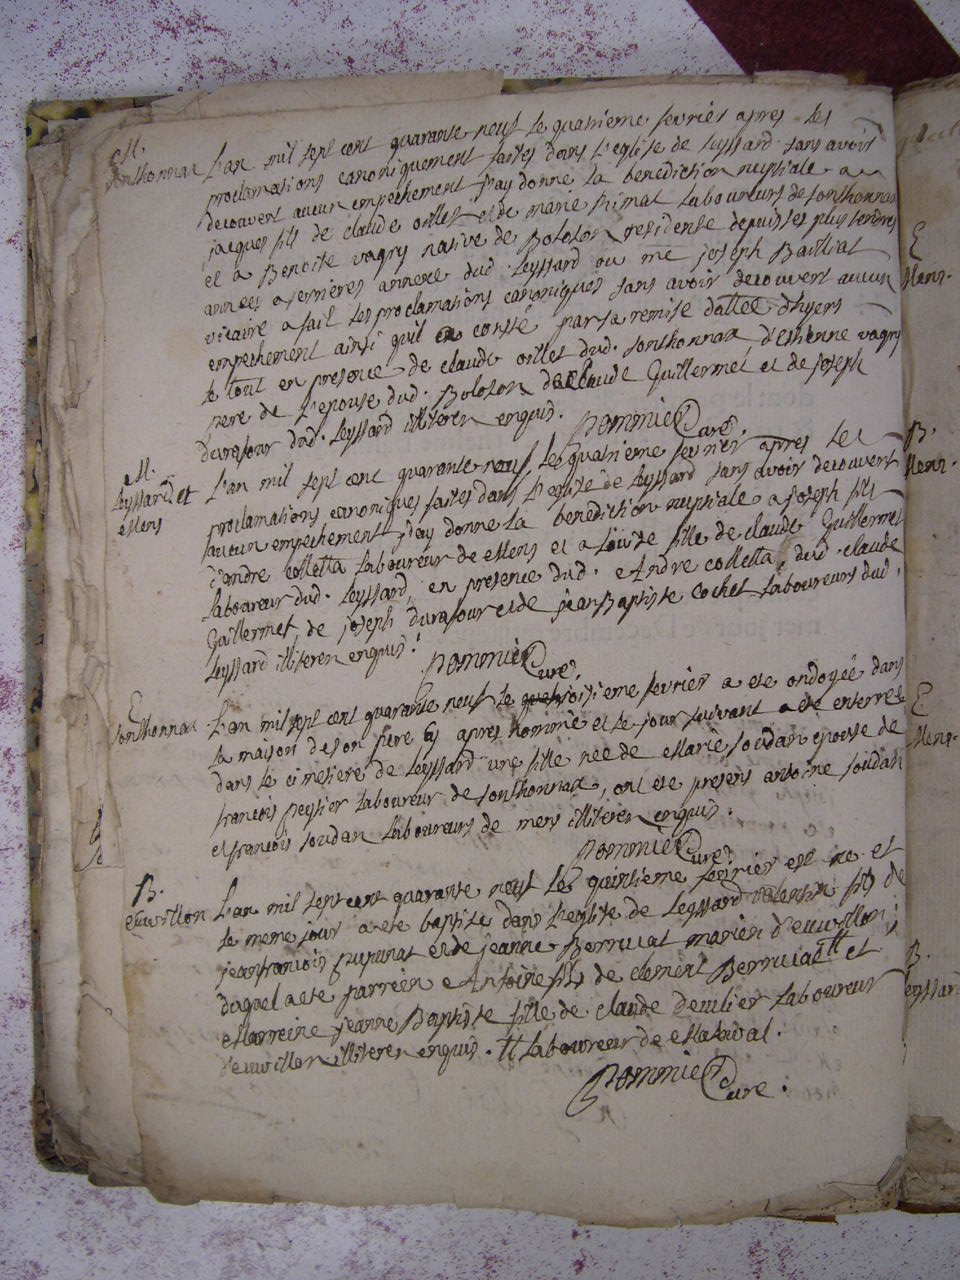 M.
Sonthonnax
L'an mil sept cent quarante neuf le quatrieme fevrier apres les
proclamations canoniquement faites dans l'eglise de Leyssard sans avoir
decouvert aucun empechement j'ay donne la benediction nuptiale a
jacques fils de claude oillet et de marie laboureurs de sonthonnax
et a Benoite vagry native de Bolozon residense depuis ses plus tendres
années a serrieres annexe dud. Leyssard ou me joseph Baillat
vicaire a fait les proclamations canoniques sans avoir decouvert aucun
empechement ainsi quil a consté par sa remise d'hyers
le tout en presence de claude oillet dud. sonthonnax d'estienne vagry
pere de l'epouse dud. Bolozon de claude Guillermet et de joseph
durafour dud. Leyssard illiteres enquis. Pommier Curé.
M.
Leyssard et
esens
L'an mil sept cent quarante neuf, le quatrieme fevrier apres les
proclamations canoniques faites dans l'eglise de Leyssard sans avoir decouvert
aucun empechement j'ay donne la benediction nuptiale a joseph fils
d'andre colletta laboureur de et a fille de claude Guillermet
laboureur dud. Leyssard, en presence dud. Andre colletta, dud. claude
Guillermet, de joseph durafour et de jean Baptiste cochet laboureurs dud.
Leyssard illiteres enquis.
Pommier Curé.
E
Sonthonnax
L'an mil sept cent quarante neuf le troisieme fevrier a ete ondoyée dans
la maison de son pere et apres homme et le jour suivant a été enterrée
dans le cimetiere de Leyssard une fille née de Marie soudan epouse de
françois peysier laboureur de sonthonnax, ont ete presens antoine soudan
et françois soudan laboureurs de mens illiteres enquis.
Pommier Curé.
B.
Euvillon
L'an mil sept cent quarante neuf le quinzieme fevrier est ne et
le meme jour a ete baptise dans l'eglise de Leyssard valentin fils de
jean francois et de jeanne Berruiat mariés d'euvillon;
duquel a ete parrein Antoine fils de clement Berruiat tt et
Marreine jeanne Baptiste fille de claude laboureur
d'euvillon illiteres enquis. tt laboureur de
Pommier Curé.
E
Mens.
B.
Mens.
E
Mens.
B.
Leyssar